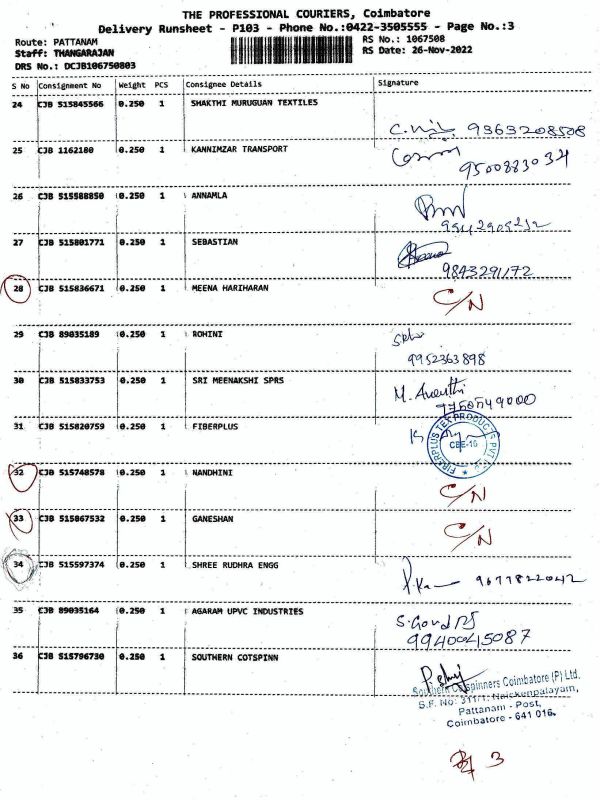 THE PROFESSIONAL COURIERS, Coimbatore
Delivery Runsheet - P103 - Phone No.:0422-3505555 - Page No.:3
Route: PATTANAM RS No.: 1067508
Staff: THANGARAJAN RS Date: 26-Nov-2022
DRS No.: DCJB106750803
S No Consignment No Weight PCS Consignee Details Signature
24 CJB 515845566 0.250 1 SHAKTHI MURUGUAN TEXTILES
9363208508
25 CJB 1162180 0.250 1 KANNIMZAR TRANSPORT
9500883034
26 CJB 515588850 0.250 1 ANNAMLA
27 CJB 515801771 0.250 1 SEBASTIAN
9843291172
28 CJB 515836671 0.250 1 MEENA HARIHARAN C/N
29 CJB 89035189 0.250 1 ROHINI
9952363898
30 CJB 515833753 0.250 1 SRI MEENAKSHI SPRS
31 CJB 515820759 0.250 1 FIBERPLUS
FIBERPLUS TEX PRODUCTS PVT. LTD
CBE-16
32 CJB 515748578 0.250 1 NANDHINI C/N
33 CJB 515867532 0.250 1 GANESHAN C/N
34 CJB 515597374 0.250 1 SHREE RUDHRA ENGG
9677822042
35 CJB 89035164 0.250 1 AGARAM UPVC INDUSTRIES
9940045087
36 CJB 515796730 0.250 1 SOUTHERN COTSPINN
Southern Cotspinners Coimbatore (P) Ltd.
S.F. No: 311/1, Naickenpalayam,
Pattanam - Post,
Coimbatore - 641 016.
3